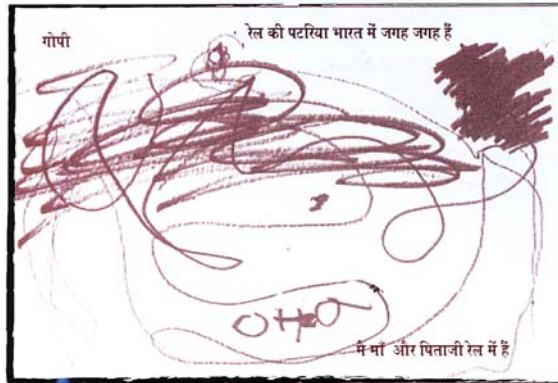 गोपी
रेल की पटरिया भारत में जगह जगह हैं
मै माँ और पिताजी रेल में हैं